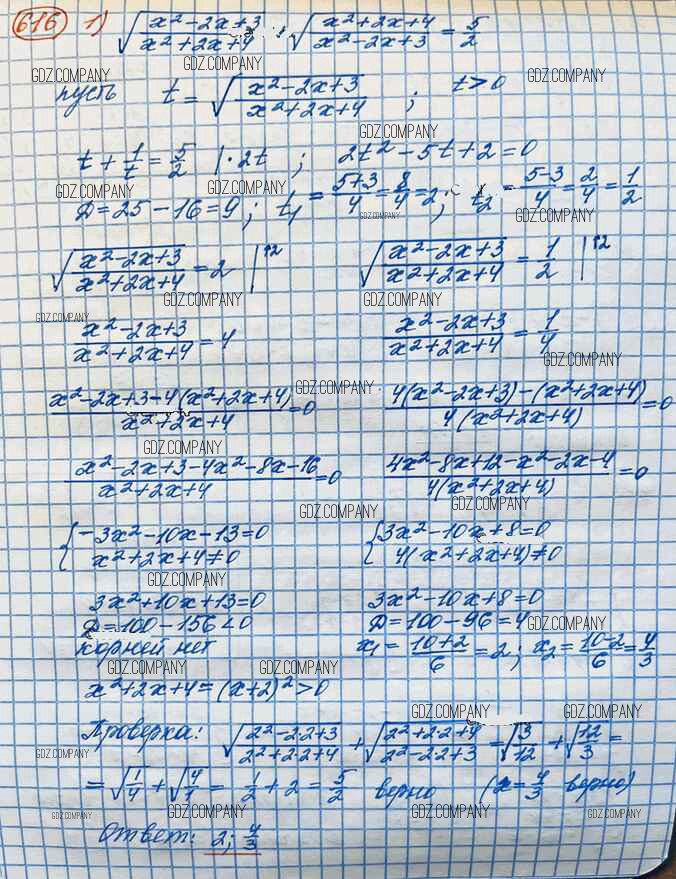 616 1) √((x²-2x+3)/(x²+2x+4)) + √((x²+2x+4)/(x²-2x+3)) = 5/2
GDZ.COMPANY GDZ.COMPANY GDZ.COMPANY
пусть t = √((x²-2x+3)/(x²+2x+4)) ; t>0
GDZ.COMPANY GDZ.COMPANY
t + 1/t = 5/2 |·2t ; 2t²-5t+2=0
GDZ.COMPANY GDZ.COMPANY GDZ.COMPANY GDZ.COMPANY
Д=25-16=9; t₁ = (5+3)/4 = 8/4 = 2; t₂ = (5-3)/4 = 2/4 = 1/2
√((x²-2x+3)/(x²+2x+4)) = 2 |↑2 √((x²-2x+3)/(x²+2x+4)) = 1/2 |↑2
GDZ.COMPANY GDZ.COMPANY
GDZ.COMPANY
(x²-2x+3)/(x²+2x+4) = 4 (x²-2x+3)/(x²+2x+4) = 1/4
GDZ.COMPANY
GDZ.COMPANY
(x²-2x+3-4(x²+2x+4))/(x²+2x+4) = 0 (4(x²-2x+3)-(x²+2x+4))/(4(x²+2x+4)) = 0
GDZ.COMPANY
(x²-2x+3-4x²-8x-16)/(x²+2x+4) = 0 (4x²-8x+12-x²-2x-4)/(4(x²+2x+4)) = 0
GDZ.COMPANY GDZ.COMPANY
{-3x²-10x-13=0 {3x²-10x+8=0
x²+2x+4≠0 4(x²+2x+4)≠0
GDZ.COMPANY
3x²+10x+13=0 3x²-10x+8=0
Д=100-156<0 Д=100-96=4
GDZ.COMPANY
корней нет x₁ = (10+2)/6 = 2; x₂ = (10-2)/6 = 4/3
GDZ.COMPANY GDZ.COMPANY
x²+2x+4=(x+2)²>0
GDZ.COMPANY GDZ.COMPANY
Проверка: √((2²-2·2+3)/(2²+2·2+4)) + √((2²+2·2+4)/(2²-2·2+3)) = √(3/12) + √(12/3) =
GDZ.COMPANY
= √(1/4) + √(4/1) = 1/2 + 2 = 5/2 верно (x=4/3 верно)
GDZ.COMPANY GDZ.COMPANY GDZ.COMPANY GDZ.COMPANY
Ответ: 2; 4/3